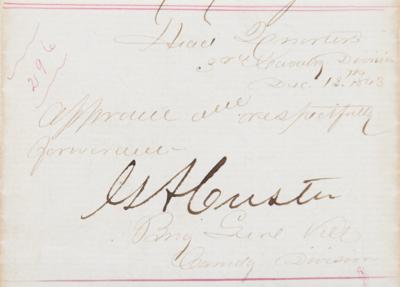 296
Head Quarters
3rd Cavalry Division
Dec. 13th 1863
Approved and respectfully
forwarded
GACuster
Brig Genl
Cavalry Division